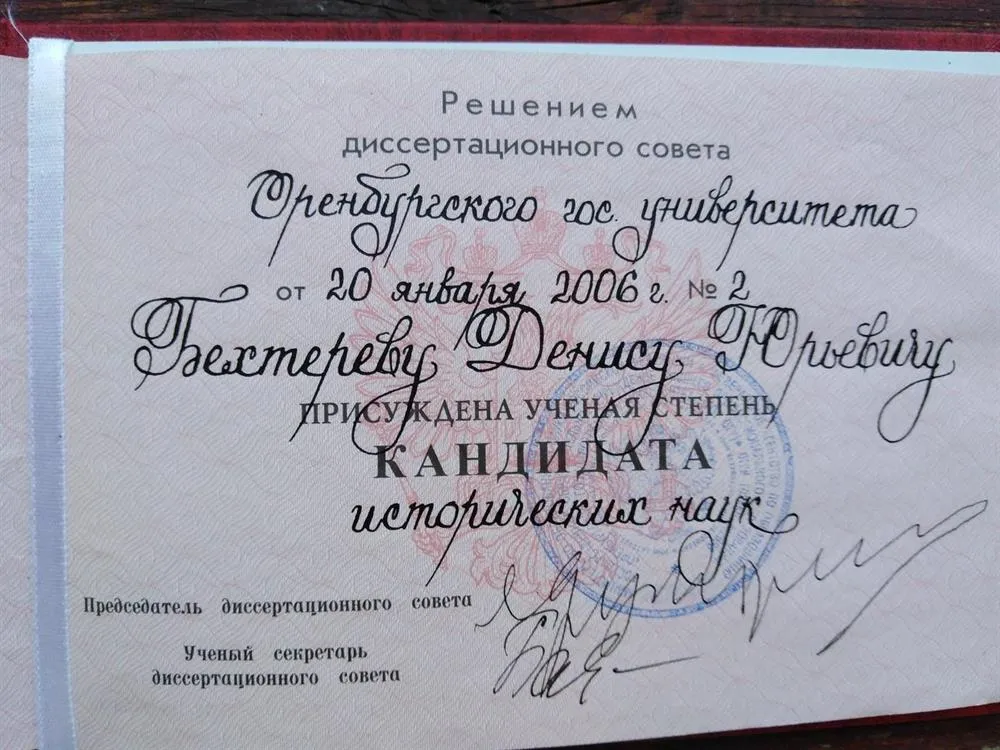 Решением
диссертационного совета
Оренбургского гос. университета
от 20 января 2006 г. № 2
Бехтереву Денису Юрьевичу
ПРИСУЖДЕНА УЧЕНАЯ СТЕПЕНЬ
КАНДИДАТА
исторических наук
Председатель диссертационного совета
Ученый секретарь
диссертационного совета